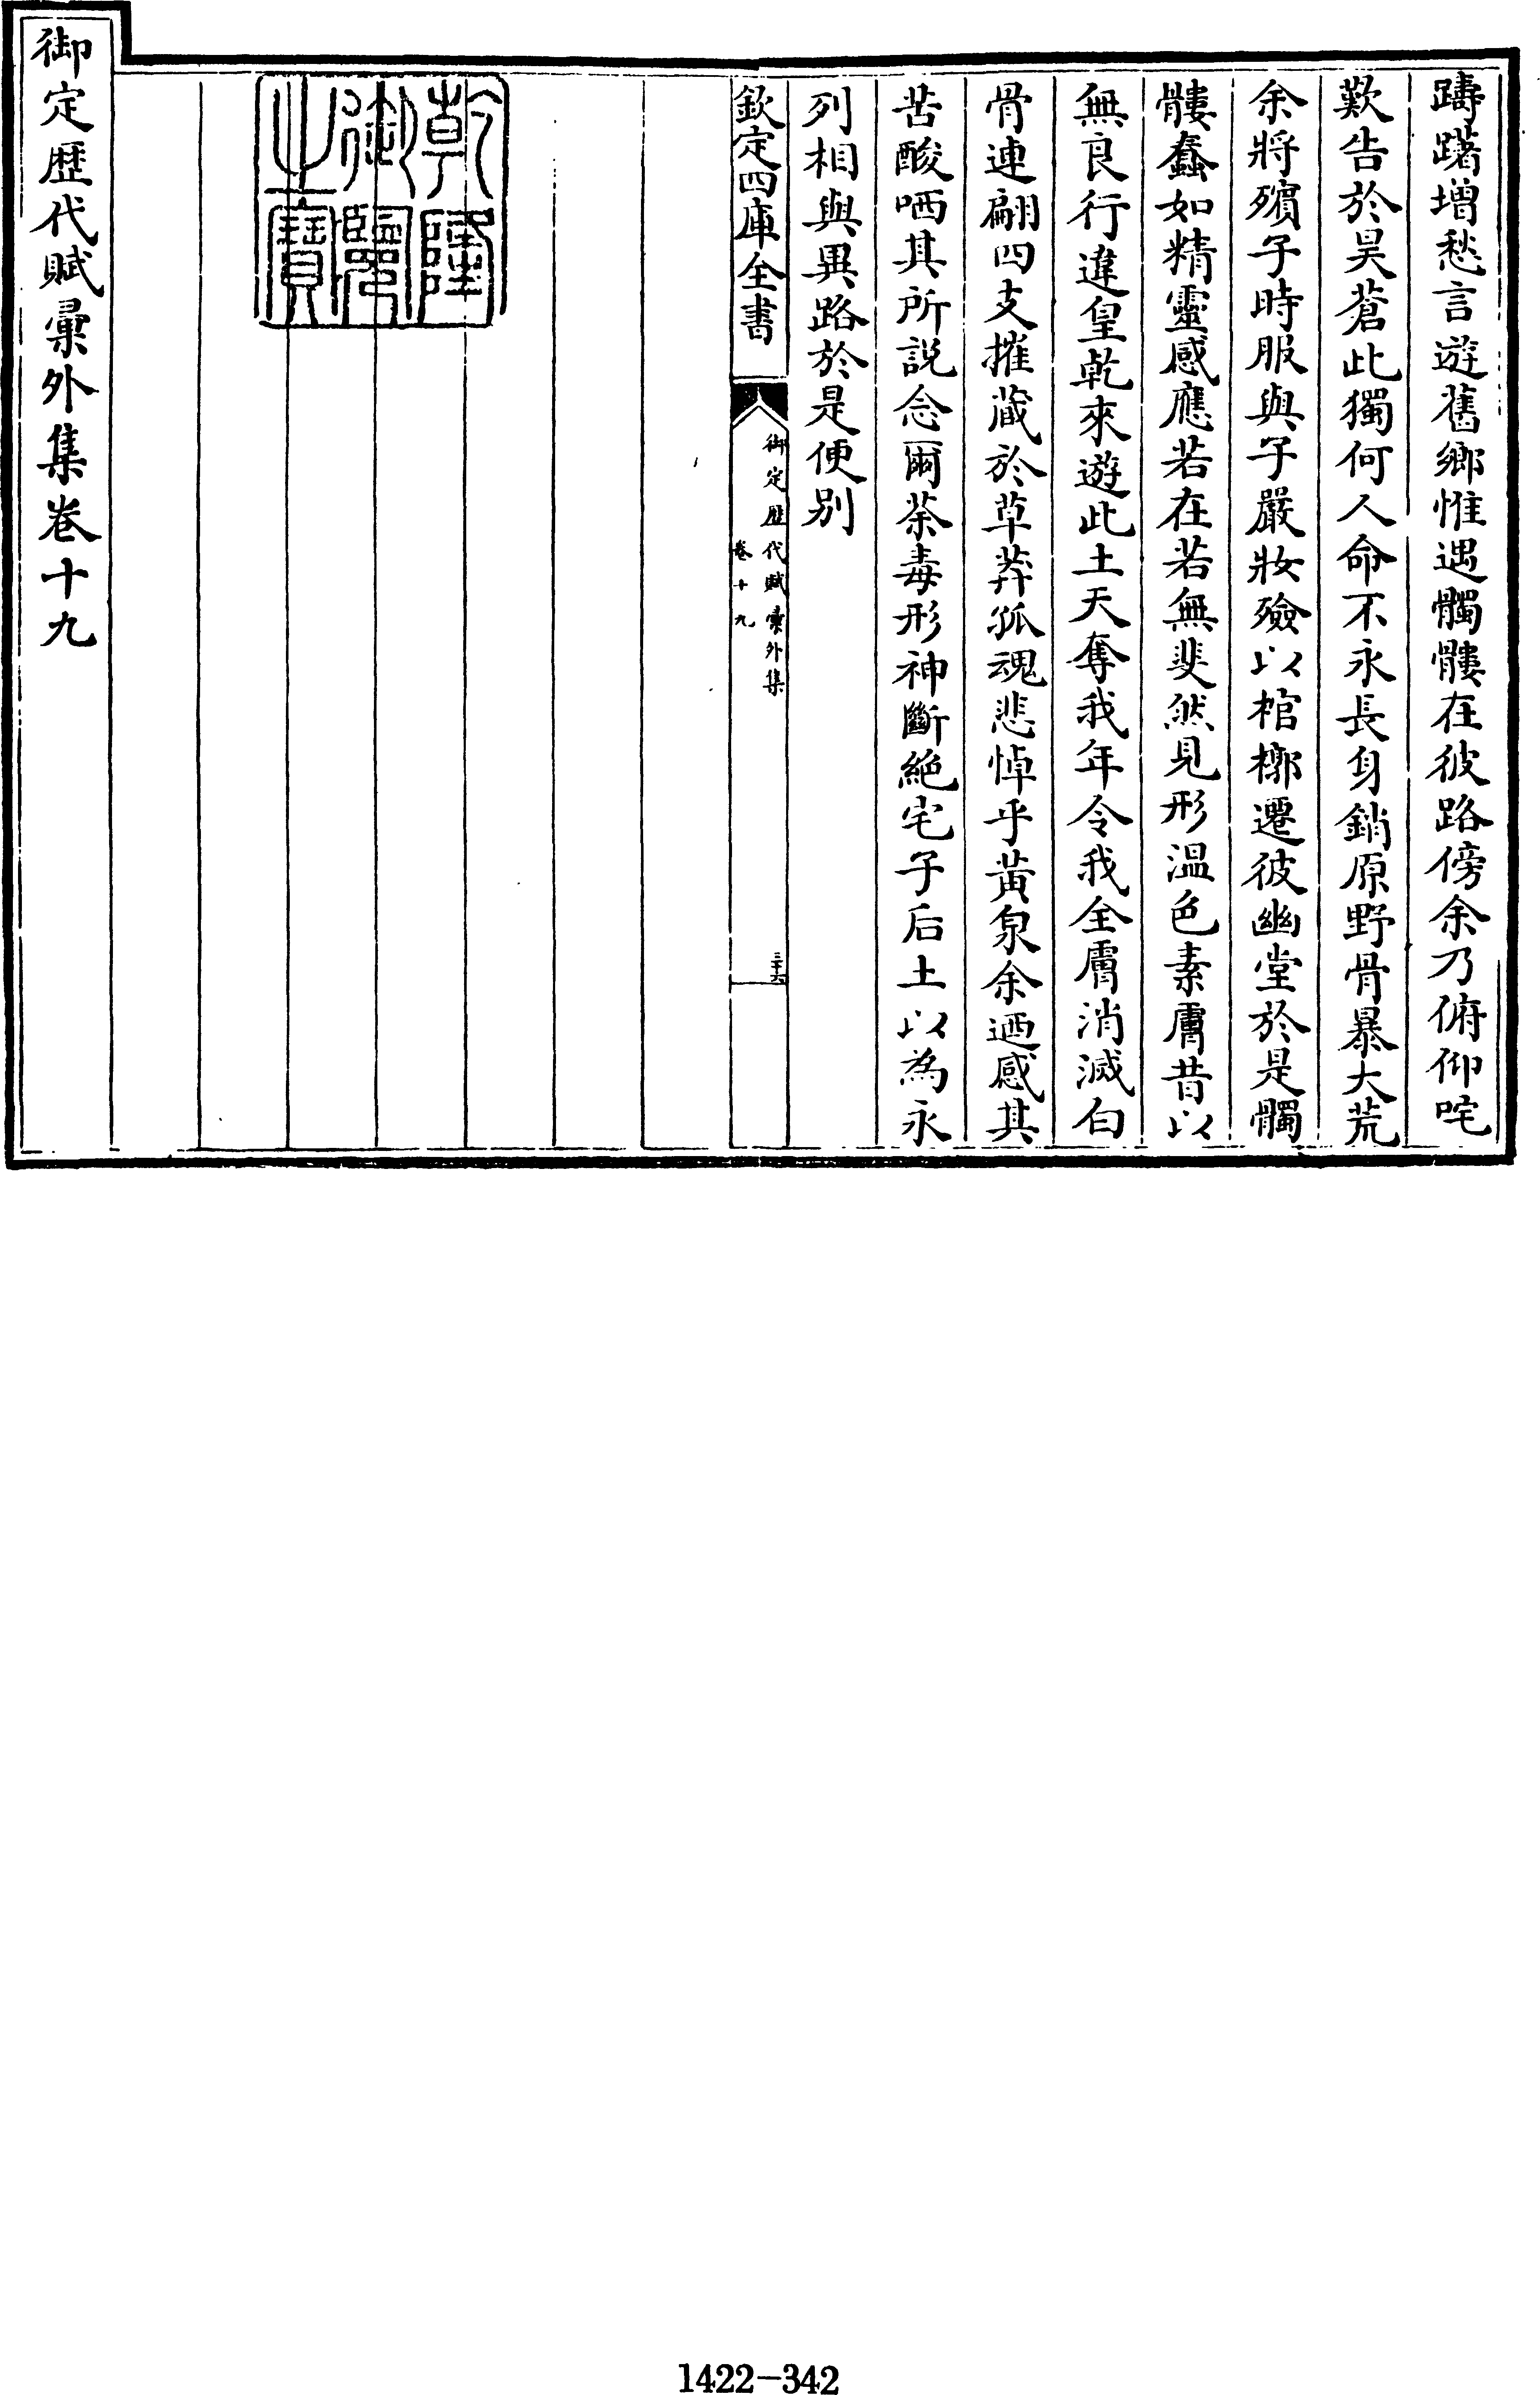 躊躇增愁言遊舊鄉惟遇髑髏在彼路傍余乃俯仰咤
歎告於昊蒼此獨何人命不永長身銷原野骨暴大荒
余將殯子時服與子嚴妝殮以棺槨遷彼幽堂於是髑
髏蠢如精靈感應若在若無斐然見形溫色素膚昔以
無良行違皇乾來遊此土天奪我年令我全膚消滅白
骨連翩四支摧藏於草莽孤魂悲悼乎黃泉余迺感其
苦酸哂其所説念爾荼毒形神斷絶宅子后土以為永
列相與異路於是便別
欽定四庫全書
御定歴代賦彙外集
卷十九
三十六
乾隆御覽之寶
御定歷代賦彙外集卷十九
1422-342